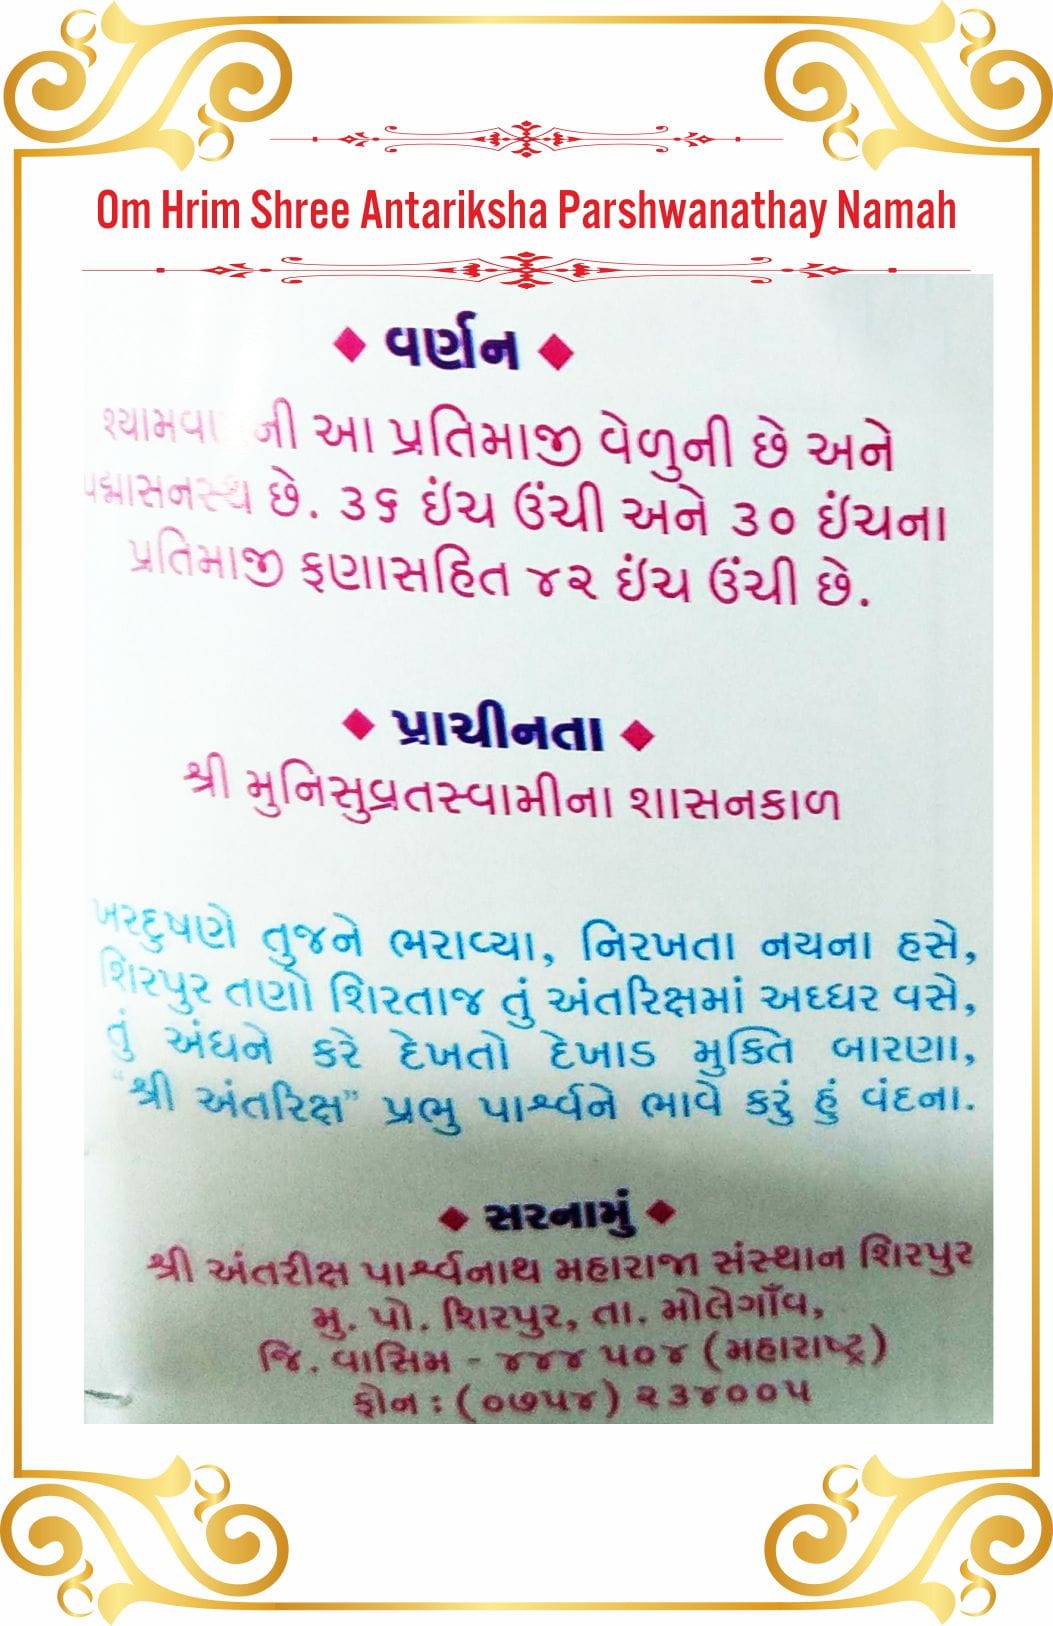 Om Hrim Shree Antariksha Parshwanathay Namah
વર્ણન
આ પ્રતિમાજી વેળુની છે અને
પદ્માસનસ્થ છે. ૩૬ ઇંચ ઉંચી અને ૩૦ ઇંચના
પ્રતિમાજી ફણાસહિત ૪૨ ઇંચ ઉંચી છે.
પ્રાચીનતા
શ્રી મુનિસુવ્રતસ્વામીના શાસનકાળ
ખરદુષણે તુજને ભરાવ્યા, નિરખતા નયના હસે,
શિરપુર તણો શિરતાજ તું અંતરિક્ષમાં અધ્ધર વસે,
તું અંધને કરે દેખતો દેખાડ મુક્તિ બારણા,
“શ્રી અંતરિક્ષ” પ્રભુ પાર્શ્વને ભાવે કરું હું વંદના.
સરનામું
શ્રી અંતરીક્ષ પાર્શ્વનાથ મહારાજા સંસ્થાન શિરપુર
મુ. પો. શિરપુર, તા. મોલેગાઁવ,
જિ. વાસિમ - ૪૪૪ ૫૦૪ (મહારાષ્ટ્ર)
ફોન : (૦૭૫૪) ૨૩૪૦૦૫